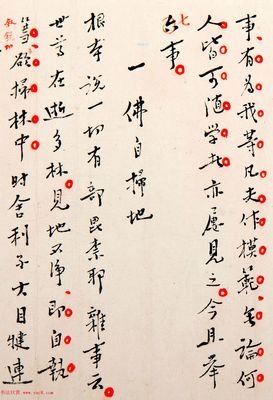 事、有為我等凡夫作模範、無論何
人皆可隨學者亦屢見之。今且舉
七
事。
一 佛自掃地
根本說一切有部毘奈耶雜事云。
世尊在逝多林。見地不淨。即自執
篲。欲掃林中。時舍利子大目犍連